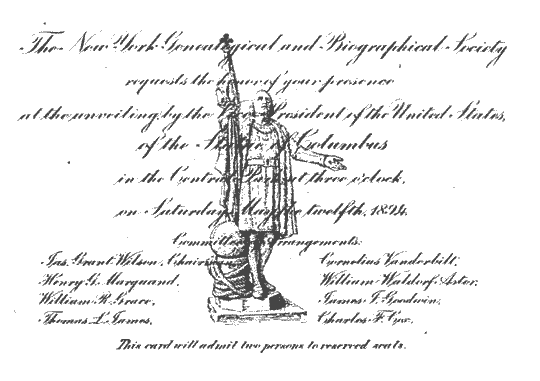 The New York Genealogical and Biographical Society
requests the honor of your presence
at the unveiling by the Vice President of the United States,
of the Statue of Columbus
in the Central Park at three o'clock,
on Saturday May the twelfth, 1894.
Committee of Arrangements:
Jas. Grant Wilson, Chairman
Henry G. Marquand,
William R. Grace,
Thomas L. James,
Cornelius Vanderbilt,
William Waldorf Astor,
James J. Goodwin,
Charles F. Cox.
This card will admit two persons to reserved seats.